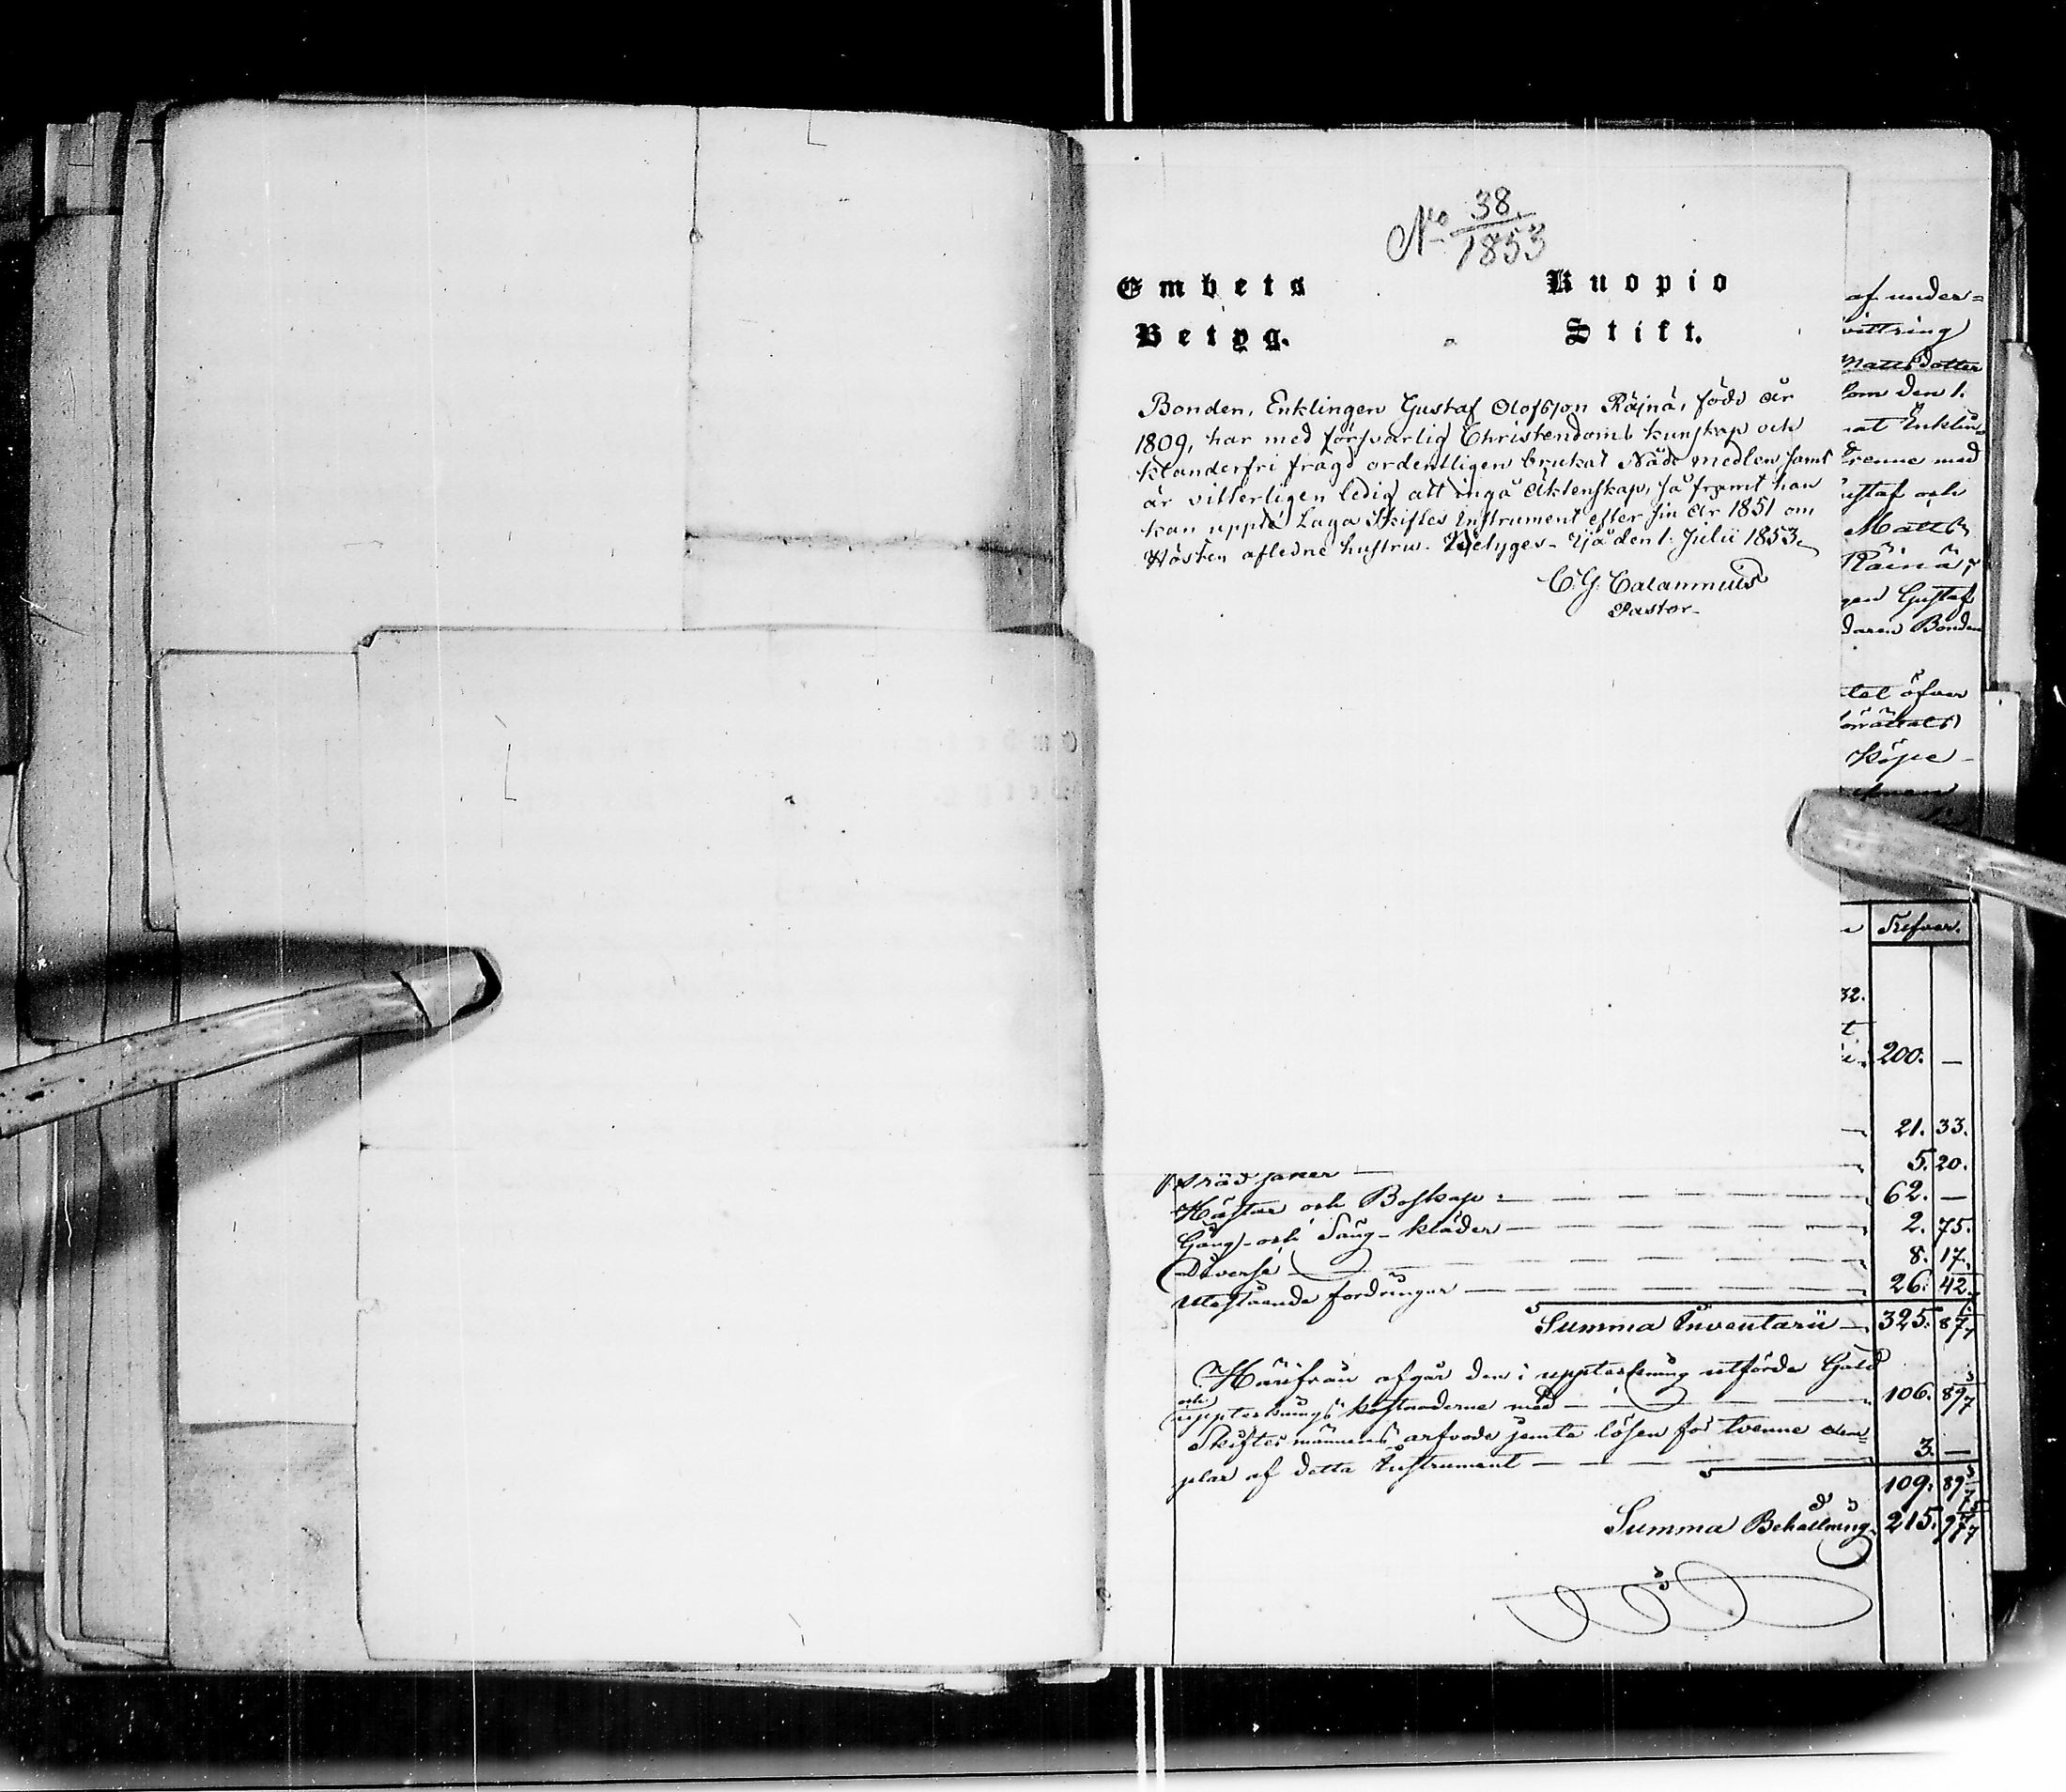 No 38/1853
Embets Kuopio
Betyg. Stift.
Bonden, Enklingen Gustaf Olofsson Räinä, född år
1809, har med försvarlig Christendoms kunskap och
klanderfri frägd ordentligen brukat Nådemedlen samt
är vitterligen ledig att ingå Äktenskap, så framt han
kan uppte Laga Skiftes Instrument efter sin År 1851 om
Hösten afledne hustru. Betygas - Ijå den 1. Julii 1853.
C. G. Calamnius
Pastor.
af under=
vittring
Mattsdotter
som den 1.
Enklin=
trenne med
ustaf och
Matts
Räinä,
gen Gustaf
daren Bonden
tel öfver
örrättats
Köpe-
Silfver.
32.
200. —
21. 33.
5. 20.
Hästar och Boskap — 62. —
Gång- och Säng-kläder — 2. 75.
Diverse — 8. 17.
Utestående fordringar — 26. 42.
Summa Inventarii — 325. 87 6/7
Härifrån afgår den i uppteckning utförde Gäld
och
uppteknings kostnaderne med — 106. 89 3/7
Skiftesmännens arfvode jemte lösen för tvenne exem=
plar af detta Instrument — 3. —
109. 89 3/7
Summa Behållning 215. 97